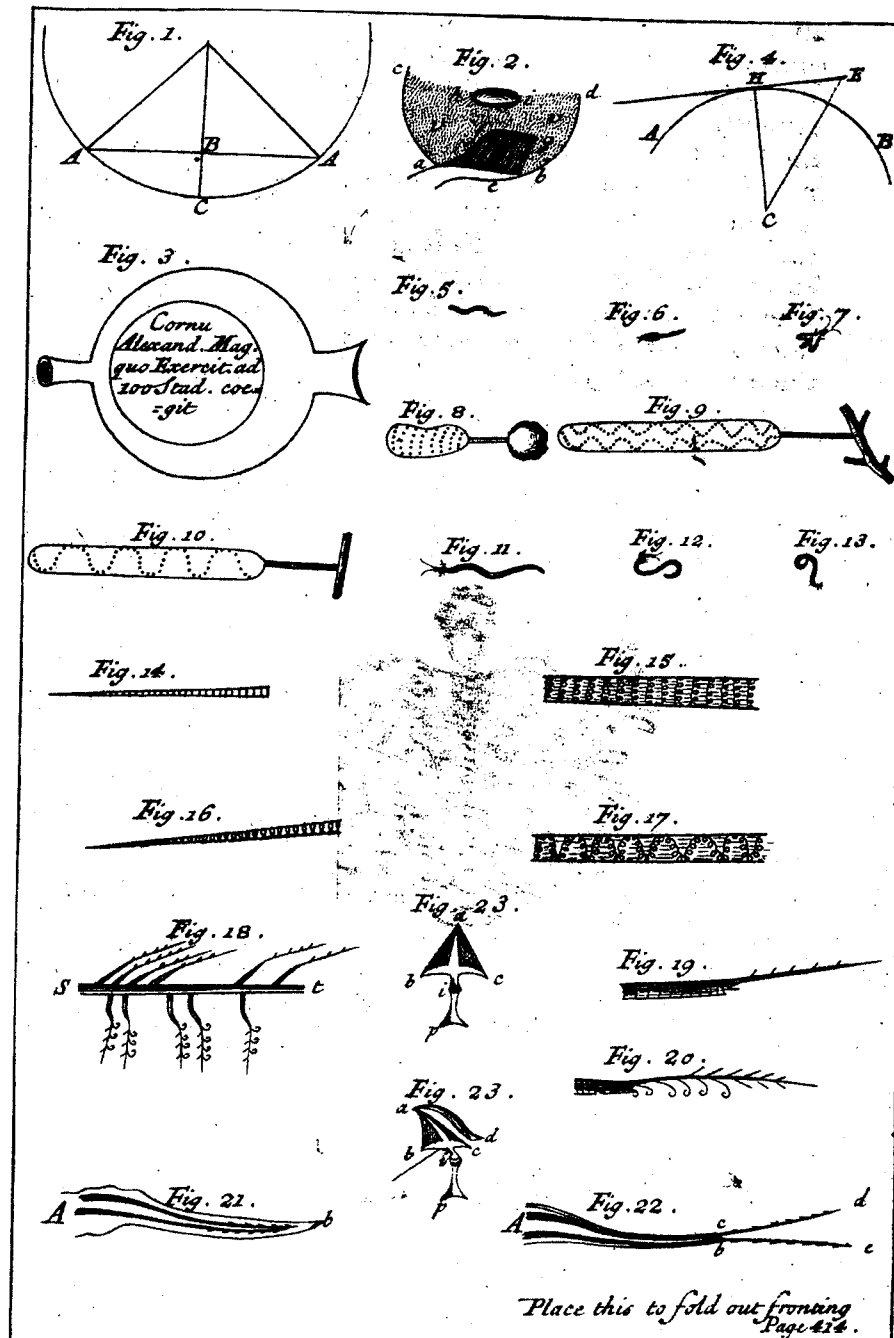 Fig. 1.
A
B
A
C
Fig. 2.
c
d
a
e
b
Fig. 4.
H
E
A
B
C
Fig. 3.
Cornu
Alexand. Mag.
quo Exercit. ad
100 Stad. coe=
=git
Fig. 5.
Fig. 6.
Fig. 7.
Fig. 8.
Fig. 9.
Fig. 10.
Fig. 11.
Fig. 12.
Fig. 13.
Fig. 14.
Fig. 15.
Fig. 16.
Fig. 17.
Fig. 18.
S
t
Fig. 23.
a
b
c
i
p
Fig. 19.
Fig. 20.
Fig. 23.
a
d
b
c
i
p
Fig. 21.
A
b
Fig. 22.
A
c
d
b
e
Place this to fold out fronting
Page 414.